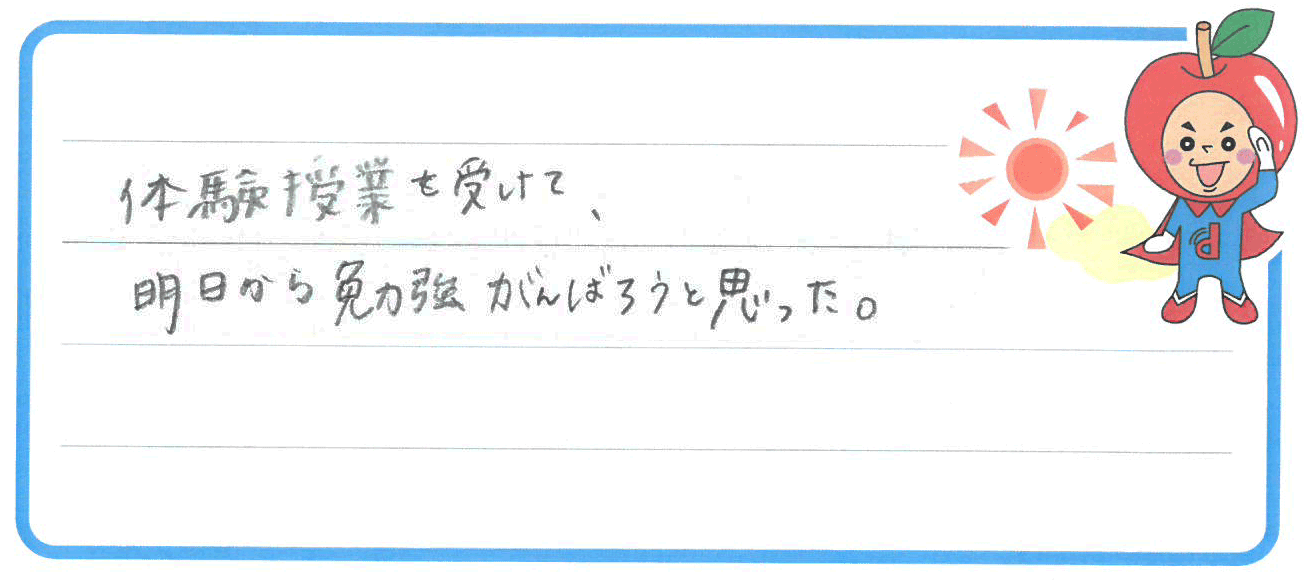 体験授業を受けて、
明日から勉強がんばろうと思った。